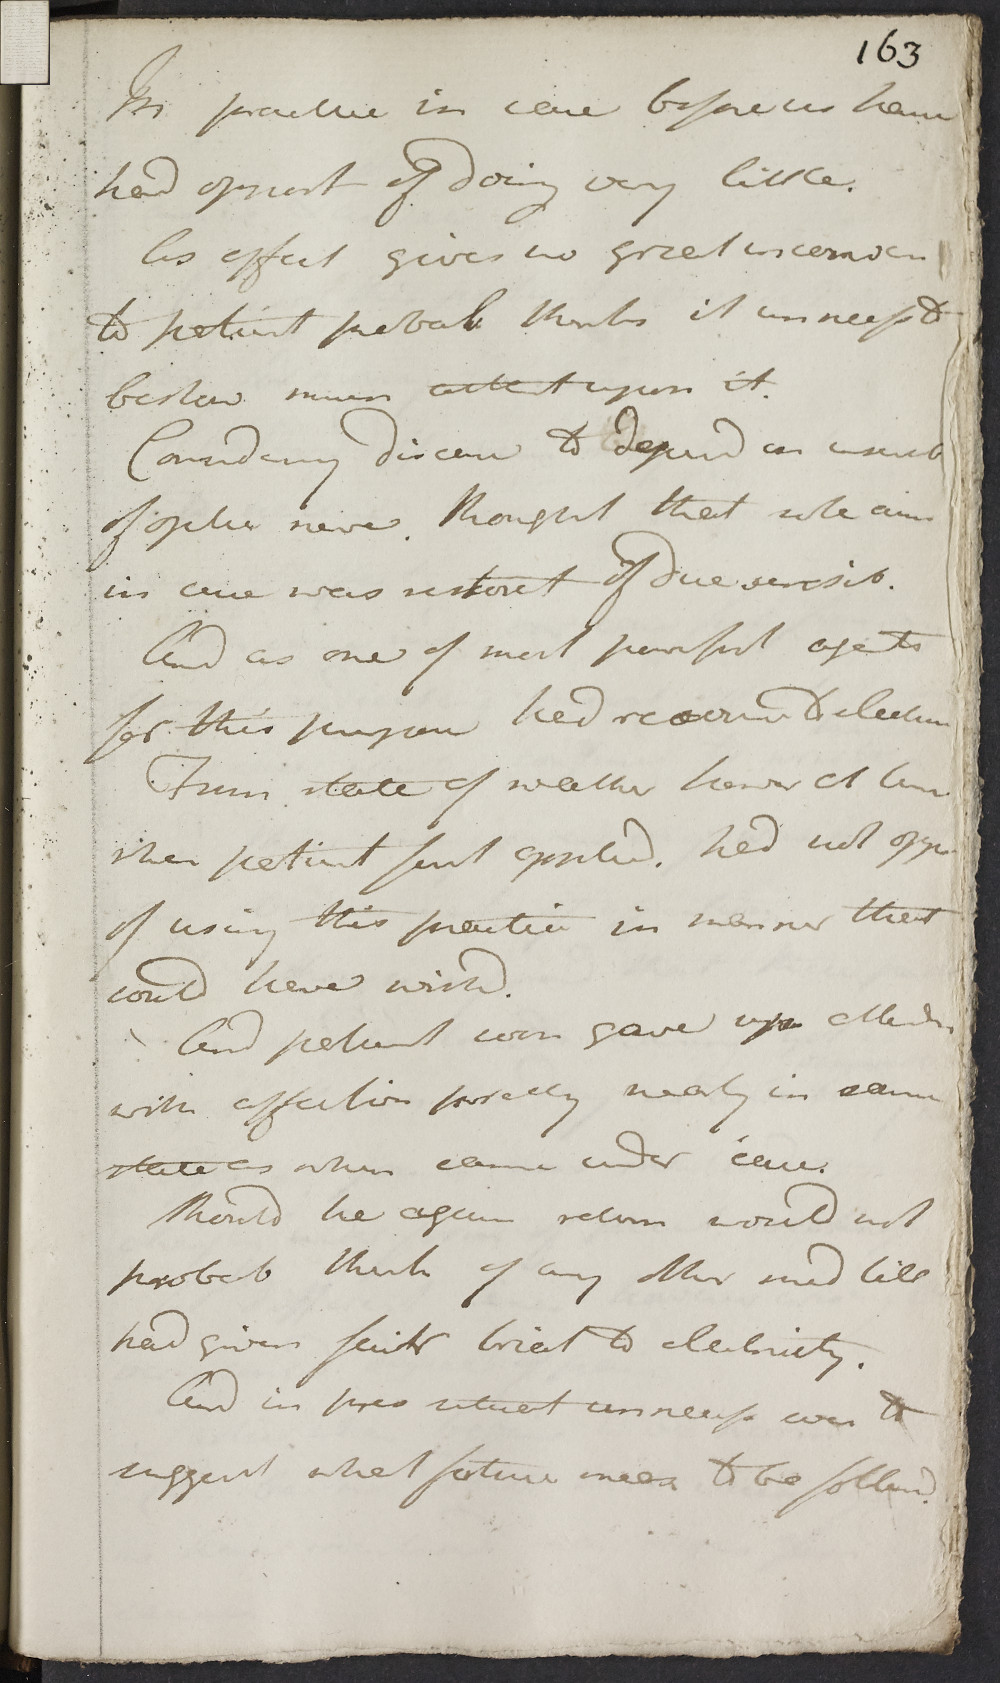 163
In practice in case before us have
had opport of doing very little.
As affect gives no great inconven
to patient probab thinks it unnecess to
bestow much attent upon it.
Considering disease to depend on insensib
of optic nerve. thought that sole aim
in cure was restorat of due sensib.
And as one of most powerful agents
for this purpose had recourse to electric
From state of weather howev at time
when patient first applied. had not oppor
of using this practice in manner that
could have wishd.
And patient soon gave up attendan
with affection pretty nearly in same
state as when came under care.
Should he again return would not
probab think of any other med till
had given fair trial to electricity.
And in pres situat unnecess to
suggest what future meas to be followd.